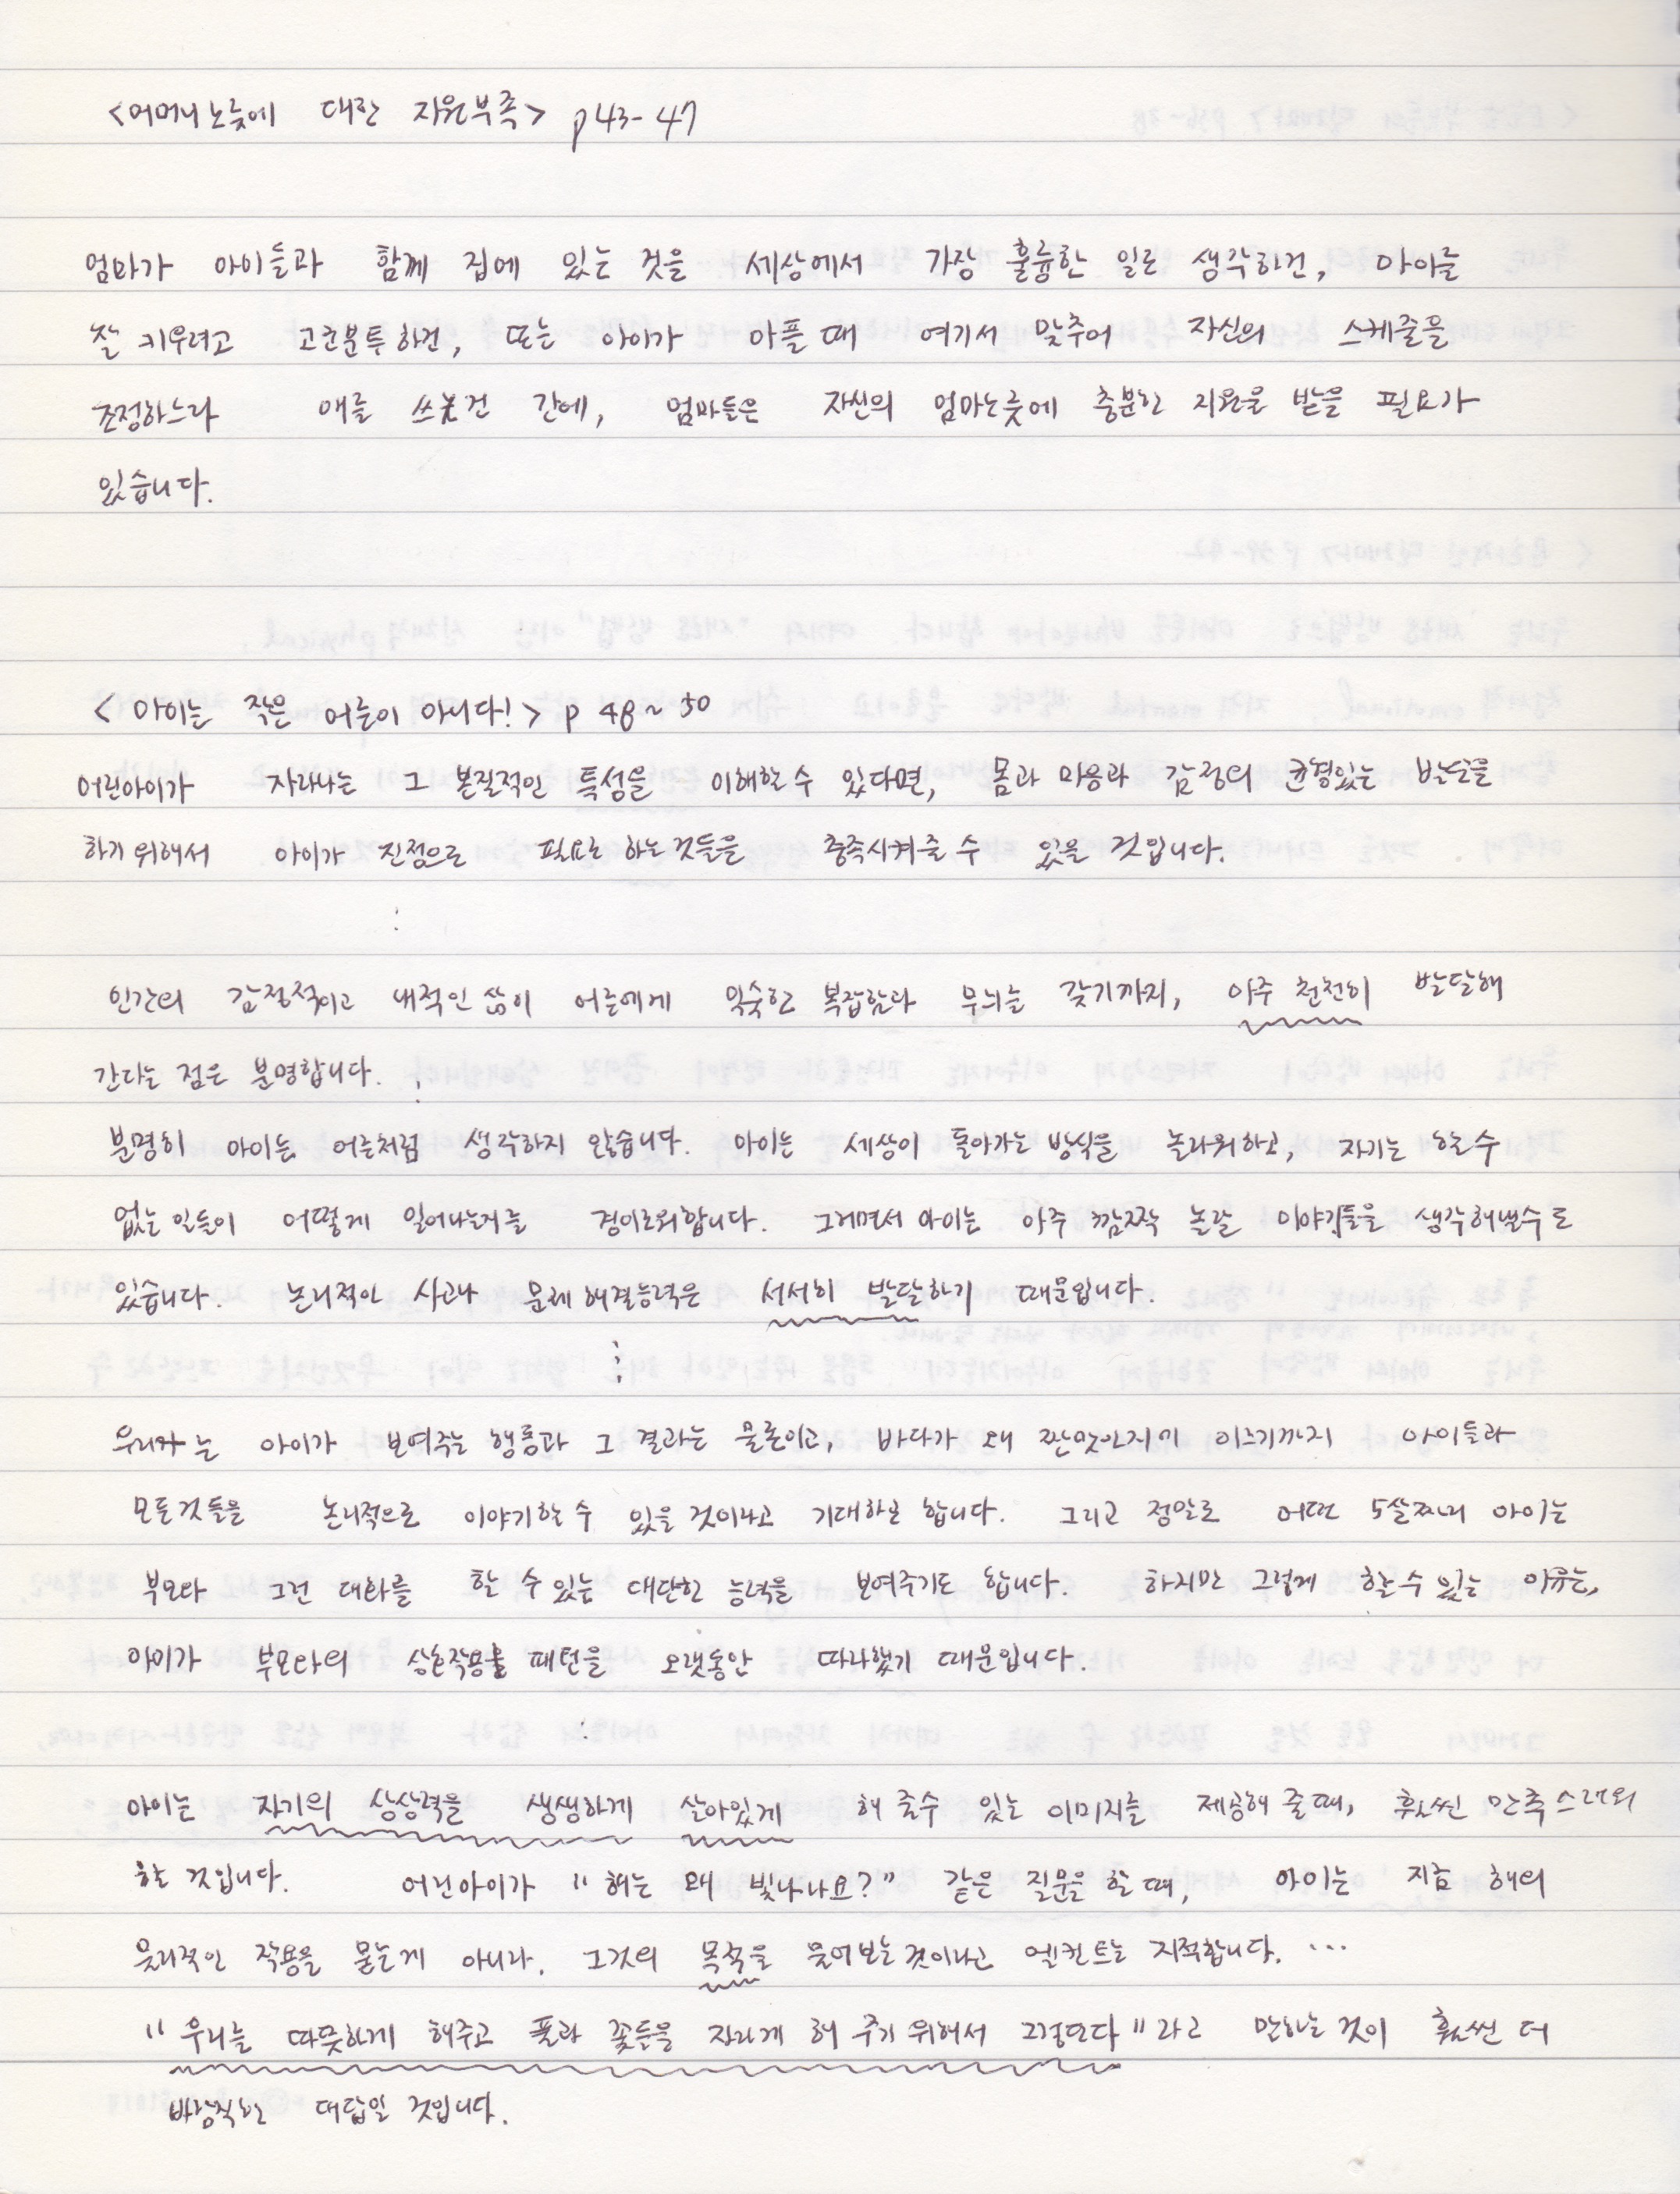 <어머니노릇에 대한 지원부족> p43-47
엄마가 아이들과 함께 집에 있는 것을 세상에서 가장 훌륭한 일로 생각하건, 아이를
잘 키우려고 고군분투하건, 또는 아이가 아플 때 여기서 맞추어 자신의 스케줄을
조정하느라 애를 쓰건 간에, 엄마들은 자신의 엄마노릇에 충분한 지원을 받을 필요가
있습니다.
<아이는 작은 어른이 아니다!> p 48~50
어린아이가 자라나는 그 본질적인 특성을 이해할 수 있다면, 몸과 마음과 감정의 균형있는 발달을
하기 위해서 아이가 진정으로 필요로 하는 것들을 충족시켜줄 수 있을 것입니다.
⋮
인간의 감정적이고 내적인 삶이 어른에게 익숙한 복잡함과 무늬를 갖기까지, 아주 천천히 발달해
간다는 점은 분명합니다. ⋮
분명히 아이는 어른처럼 생각하지 않습니다. 아이는 세상이 돌아가는 방식을 놀라워하고, 자기는 할 수
없는 일들이 어떻게 일어나는거를 경이로워합니다. 그러면서 아이는 아주 깜짝 놀랄 이야기들을 생각해낼수도
있습니다. 논리적인 사고나 문제 해결능력은 서서히 발달하기 때문입니다.
⋮
우리는 아이가 보여주는 행동과 그 결과는 물론이고, 바다가 왜 짠맛인지에 이르기까지 아이들과
모든 것들을 논리적으로 이야기할 수 있을 것이라고 기대하곤 합니다. 그리고 정말로 어떤 5살짜리 아이는
부모와 그런 대화를 할 수 있는 대단한 능력을 보여주기도 합니다. 하지만 그렇게 할 수 있는 이유는,
아이가 부모와의 상호작용 패턴을 오랫동안 따라했기 때문입니다.
⋮
아이는 자기의 상상력을 생생하게 살아있게 해 줄수 있는 이미지를 제공해 줄 때, 훨씬 만족스러워
할 것입니다. 어린아이가 "해는 왜 빛나나요?" 같은 질문을 할 때, 아이는 지금 해의
물리적인 작용을 묻는게 아니라, 그것의 목적을 물어보는 것이라고 엘컨트는 지적합니다. …
"우리를 따뜻하게 해주고 풀과 꽃들을 자라게 해 주기 위해서 그렇단다"라고 말하는 것이 훨씬 더
바람직한 대답일 것입니다.